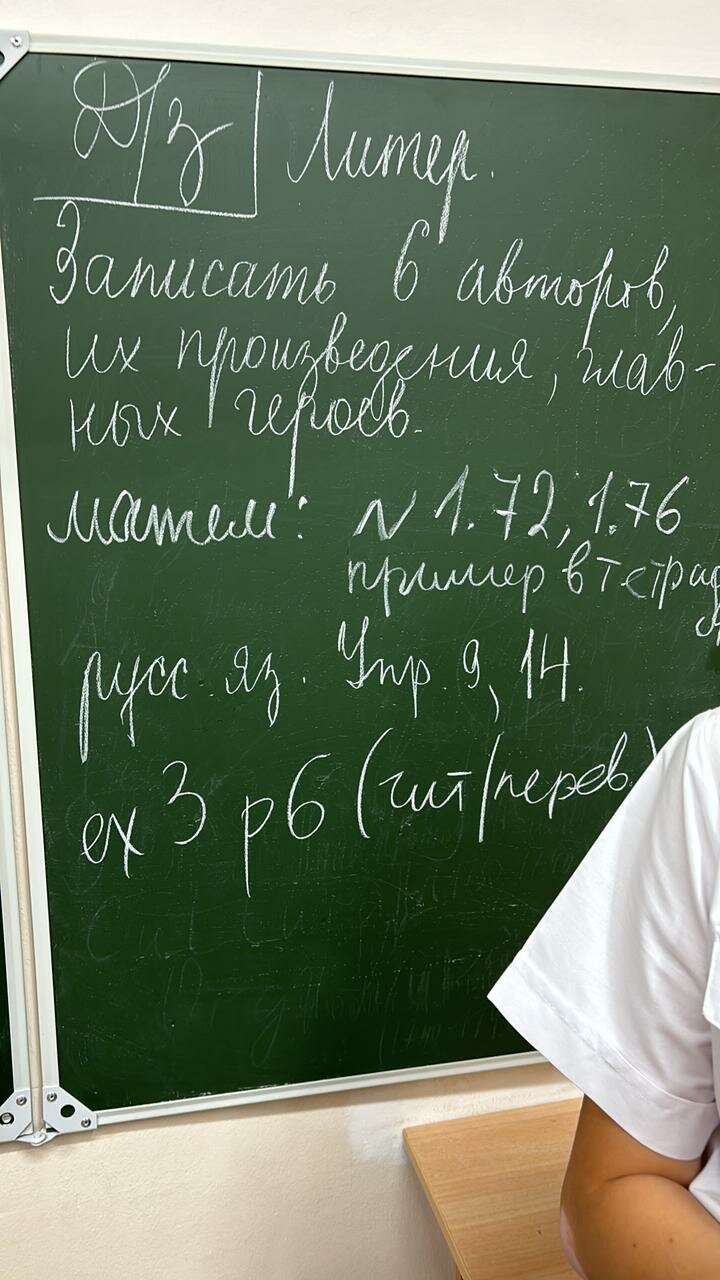 Д/з Литер.
Записать 6 авторов,
их произведения, глав-
ных героев.
матем: N 1.72, 1.76
пример в тетрад
русс. яз. Упр. 9, 14.
ex 3 p 6 (чит/перев.)